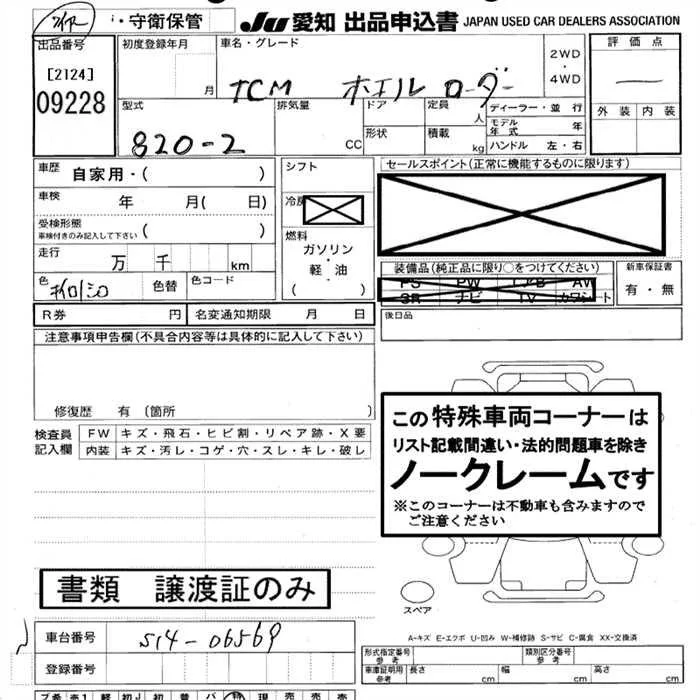 ・守衛保管
JU 愛知 出品申込書 JAPAN USED CAR DEALERS ASSOCIATION
出品番号
[2124]
09228
初度登録年月
月
車名・グレード
TCM ホイルローダー
2WD
・
4WD
評価点
外装 内装
型式
820-2
排気量
CC
ドア
形状
定員
人
積載
kg
ディーラー・並行
モデル年式 年
ハンドル 左・右
車歴
自家用・( )
車検 年 月( 日)
受検形態
車検付きのみ記入して下さい ( )
走行 万 千 km
色 色替 色コード
シフト
冷房
燃料
ガソリン
・
軽・油
( )
セールスポイント(正常に機能するものに限ります)
装備品(純正品に限り○をつけてください)
PS PW エアB AW
SR ナビ TV カワシート
新車保証書
有・無
後日品
R券 円 名変通知期限 月 日
注意事項申告欄(不具合内容等は具体的に記入して下さい)
修復歴 有 〔箇所 〕
検査員
記入欄
FW キズ・飛石・ヒビ割・リペア跡・X要
内装 キズ・汚レ・コゲ・穴・スレ・キレ・破レ
この特殊車両コーナーは
リスト記載間違い・法的問題車を除き
ノークレームです
※このコーナーは不動車も含みますので
ご注意ください
書類 譲渡証のみ
スペア
車台番号 514-06569
登録番号
A-キズ E-エクボ U-凹み W-補修跡 S-サビ C-腐食 XX-交換済
形式指定番号
参考
類別区分番号
参考
車庫証明用
参考
長さ 幅 高さ
cm cm cm